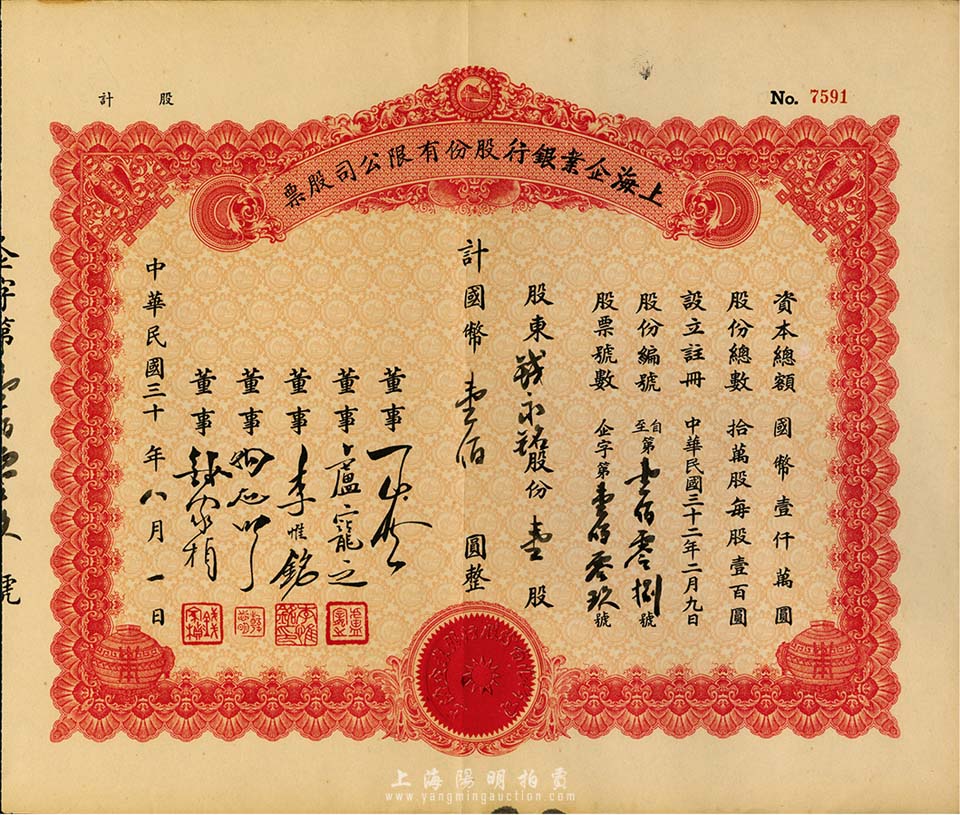 股 計
No. 7591
上海企業銀行股份有限公司股票
資本總額 國幣壹仟萬圓
股份總數 拾萬股每股壹百圓
設立註冊 中華民國三十二年二月九日
股份編號 自至第壹佰零捌號
股票號數 企字第壹佰零玖號
股東錢永銘股份壹股
計國幣壹佰圓整
董事
董事 盧寵之
董事 李惟銘
董事
董事
中華民國三十年八月一日
上海陽明拍賣
www.yangmingauction.com